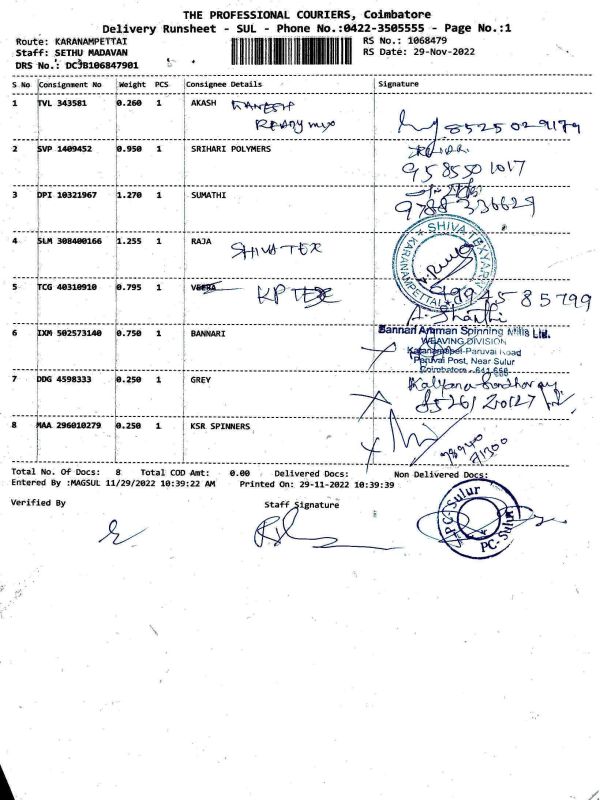 THE PROFESSIONAL COURIERS, Coimbatore
Delivery Runsheet - SUL - Phone No.:0422-3505555 - Page No.:1
Route: KARANAMPETTAI RS No.: 1068479
Staff: SETHU MADAVAN RS Date: 29-Nov-2022
DRS No.: DC3B106847901
S No Consignment No Weight PCS Consignee Details Signature
1 TVL 343581 0.260 1 AKASH GANESH
READYmyo
8525029179
2 SVP 1409452 0.950 1 SRIHARI POLYMERS
9585501017
3 DPI 10321967 1.270 1 SUMATHI
9788336629
4 SLM 308400166 1.255 1 RAJA SHIVA TEX
SHIVA TEX
KARANAMPETTAI
5 TCG 40310910 0.795 1 VEERA KP TEX
9994585799
A. Shanthi
6 IXM 502573140 0.750 1 BANNARI
Bannari Amman Spinning Mills Ltd.
WEAVING DIVISION
Karanampet-Paruvai Road
Paruvai Post, Near Sulur
Coimbatore - 641 658
7 DDG 4598333 0.250 1 GREY
8 MAA 296010279 0.250 1 KSR SPINNERS
Total No. Of Docs: 8 Total COD Amt: 0.00 Delivered Docs: Non Delivered Docs:
Entered By :MAGSUL 11/29/2022 10:39:22 AM Printed On: 29-11-2022 10:39:39
Verified By Staff Signature
PC-Sulur
PC-Sulur